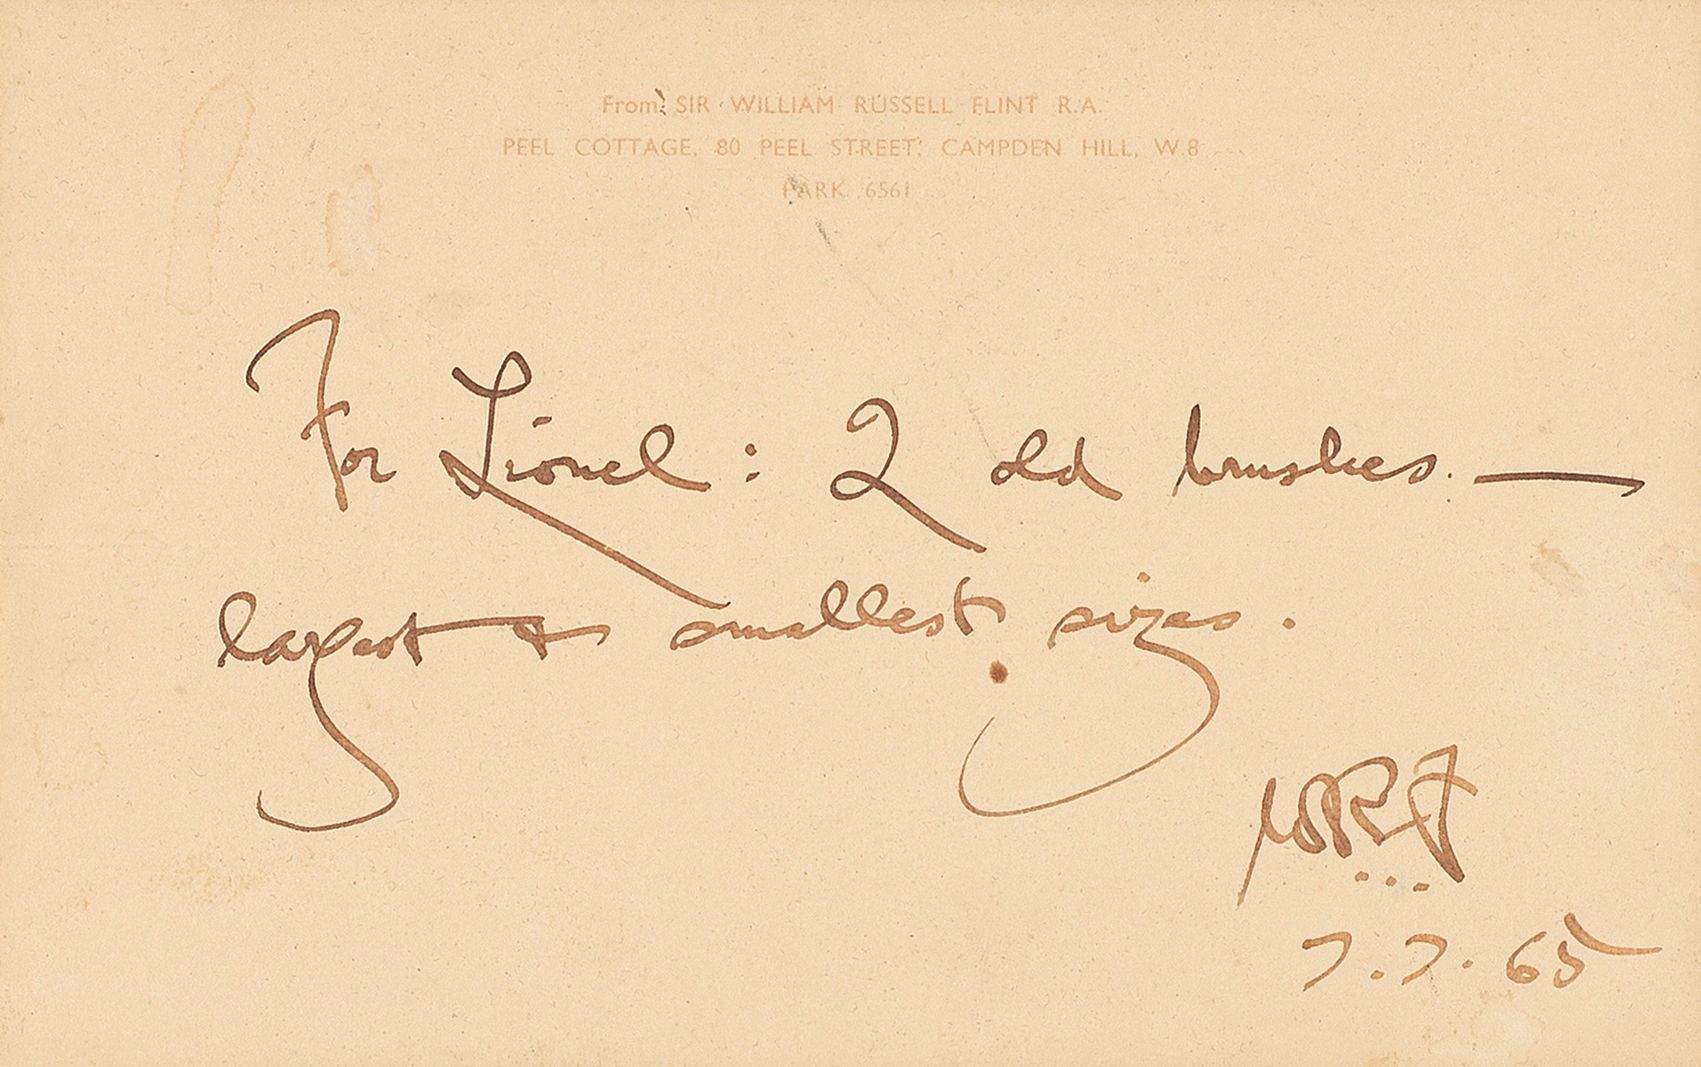 From SIR WILLIAM RUSSELL FLINT R.A.
PEEL COTTAGE, 80 PEEL STREET, CAMPDEN HILL, W.8
PARK 6561
For Lionel: 2 old brushes. —
largest & smallest sizes.
WRF
7.7.65